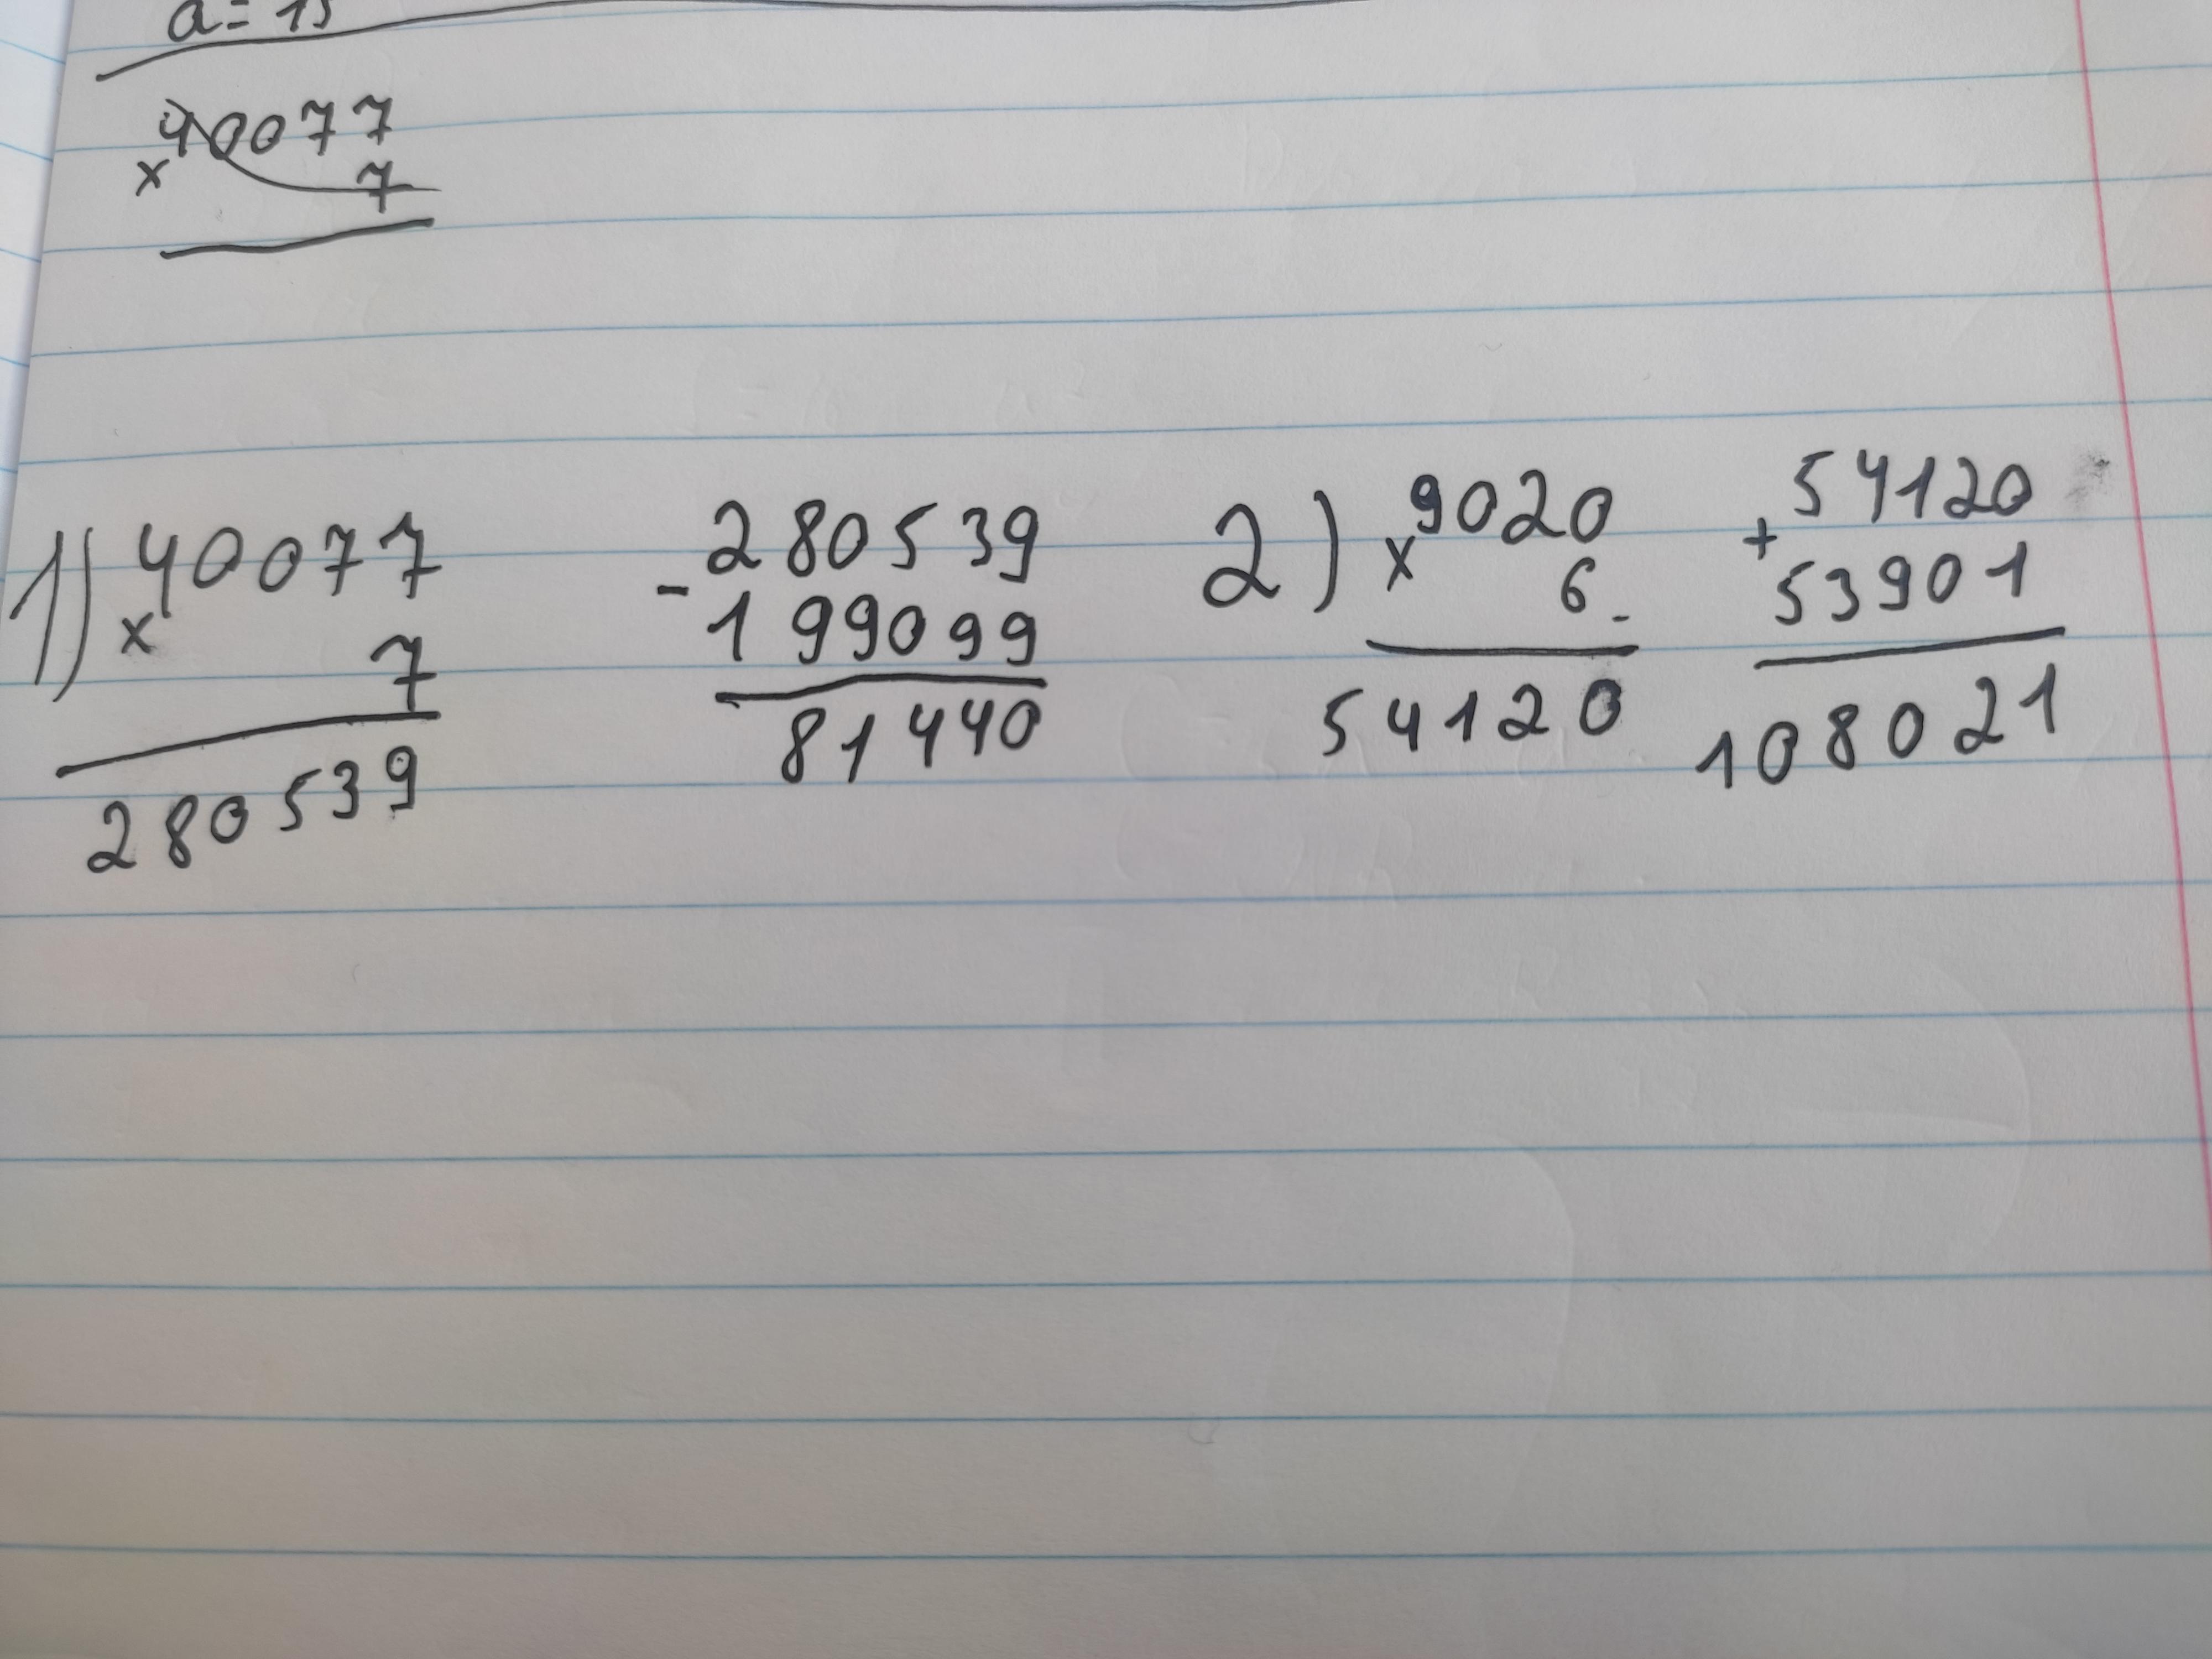 a = 15
40077
x 7
1) 40077
x 7
280539
280539
- 199099
81440
2) x 9020
6
54120
54120
+ 53901
108021